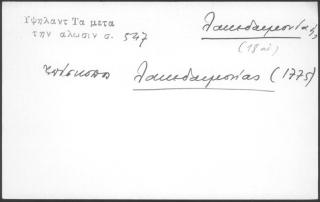 Υψηλαντ Τα μετα
την αλωσιν σ. 547
Λακεδαιμονίας
(18 αἰ)
Ἐπίσκοποι Λακεδαιμονίας (1775)